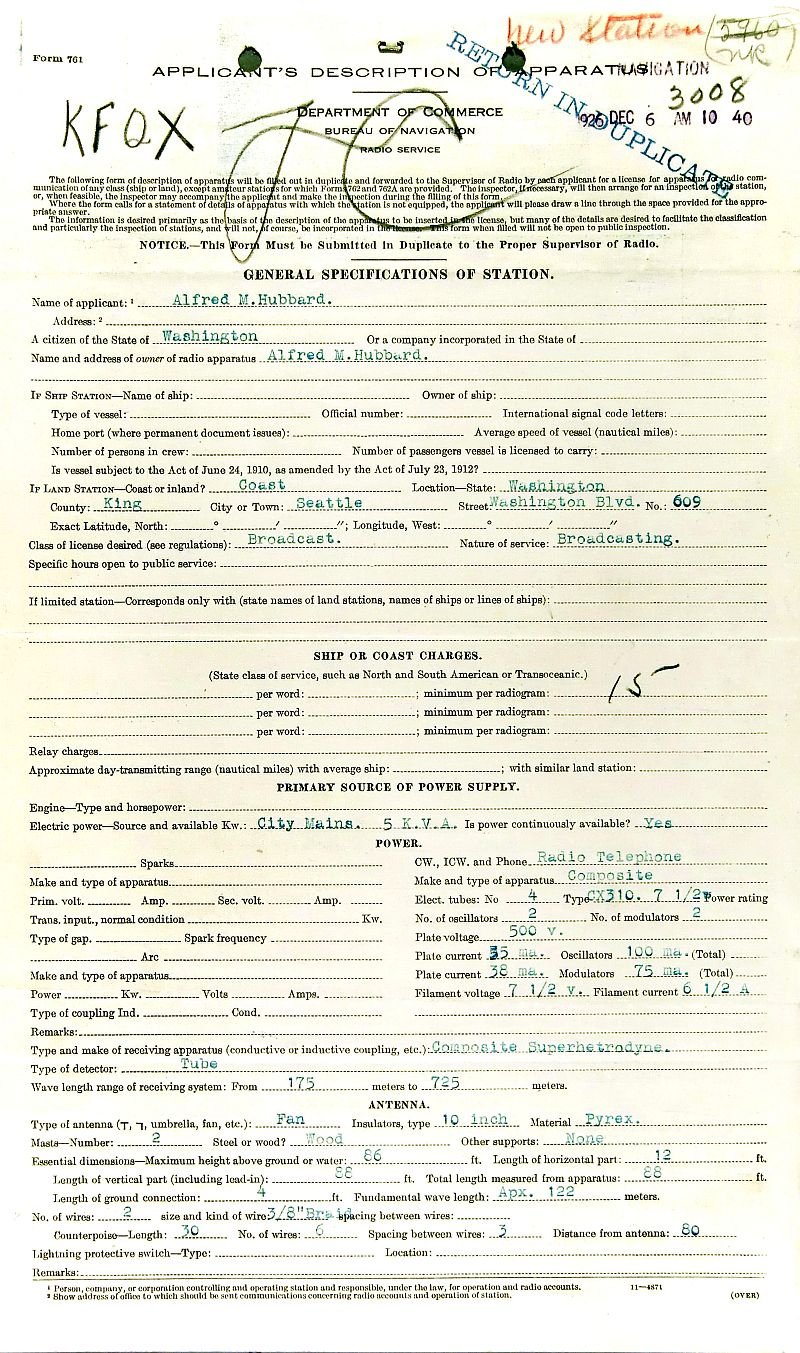 New Station
5960
NR
Form 761
APPLICANT'S DESCRIPTION OF APPARATUS
NAVIGATION
RETURN IN DUPLICATE
3008
1926 DEC 6 AM 10 40
KFQX
DEPARTMENT OF COMMERCE
BUREAU OF NAVIGATION
RADIO SERVICE
The following form of description of apparatus will be filled out in duplicate and forwarded to the Supervisor of Radio by each applicant for a license for apparatus for radio com-
munication of any class (ship or land), except amateur stations for which Forms 762 and 762A are provided. The inspector, if necessary, will then arrange for an inspection of the station,
or, when feasible, the inspector may accompany the applicant and make the inspection during the filling of this form.
Where the form calls for a statement of details of apparatus with which the station is not equipped, the applicant will please draw a line through the space provided for the appro-
priate answer.
The information is desired primarily as the basis of the description of the apparatus to be inserted in the license, but many of the details are desired to facilitate the classification
and particularly the inspection of stations, and will not, of course, be incorporated in the license. This form when filled will not be open to public inspection.
NOTICE.—This Form Must be Submitted in Duplicate to the Proper Supervisor of Radio.
GENERAL SPECIFICATIONS OF STATION.
Name of applicant: ¹ Alfred M.Hubbard.
Address: ²
A citizen of the State of Washington Or a company incorporated in the State of
Name and address of owner of radio apparatus Alfred M.Hubbard.
IF SHIP STATION—Name of ship: Owner of ship:
Type of vessel: Official number: International signal code letters:
Home port (where permanent document issues): Average speed of vessel (nautical miles):
Number of persons in crew: Number of passengers vessel is licensed to carry:
Is vessel subject to the Act of June 24, 1910, as amended by the Act of July 23, 1912?
IF LAND STATION—Coast or inland? Coast Location—State: Washington
County: King City or Town: Seattle Street Washington Blvd. No.: 609
Exact Latitude, North: ° ′ ″; Longitude, West: ° ′ ″
Class of license desired (see regulations): Broadcast. Nature of service: Broadcasting.
Specific hours open to public service:
If limited station—Corresponds only with (state names of land stations, names of ships or lines of ships):
SHIP OR COAST CHARGES.
(State class of service, such as North and South American or Transoceanic.)
per word: ; minimum per radiogram: 15
per word: ; minimum per radiogram:
per word: ; minimum per radiogram:
Relay charges
Approximate day-transmitting range (nautical miles) with average ship: ; with similar land station:
PRIMARY SOURCE OF POWER SUPPLY.
Engine—Type and horsepower:
Electric power—Source and available Kw.: City Mains. 5 K.V.A. Is power continuously available? Yes
POWER.
Sparks CW., ICW. and Phone Radio Telephone
Make and type of apparatus Make and type of apparatus Composite
Prim. volt. Amp. Sec. volt. Amp. Elect. tubes: No 4 Type CX310. 7 1/2w Power rating
Trans. input., normal condition Kw. No. of oscillators 2 No. of modulators 2
Type of gap. Spark frequency Plate voltage 500 v.
Arc Plate current 35 ma. Oscillators 100 ma. (Total)
Make and type of apparatus Plate current 38 ma. Modulators 75 ma. (Total)
Power Kw. Volts Amps. Filament voltage 7 1/2 v. Filament current 6 1/2 A
Type of coupling Ind. Cond.
Remarks:
Type and make of receiving apparatus (conductive or inductive coupling, etc.): Composite Superhetrodyne.
Type of detector: Tube
Wave length range of receiving system: From 175 meters to 725 meters.
ANTENNA.
Type of antenna (T, ┐, umbrella, fan, etc.): Fan Insulators, type 10 inch Material Pyrex.
Masts—Number: 2 Steel or wood? Wood Other supports: None
Essential dimensions—Maximum height above ground or water: 86 ft. Length of horizontal part: 12 ft.
Length of vertical part (including lead-in): 88 ft. Total length measured from apparatus: 88 ft.
Length of ground connection: 4 ft. Fundamental wave length: Apx. 122 meters.
No. of wires: 2 size and kind of wire 3/8"Braid spacing between wires:
Counterpoise—Length: 30 No. of wires: 6 Spacing between wires: 3 Distance from antenna: 80
Lightning protective switch—Type: Location:
Remarks:
¹ Person, company, or corporation controlling and operating station and responsible, under the law, for operation and radio accounts. 11—4871
² Show address of office to which should be sent communications concerning radio accounts and operation of station. (OVER)